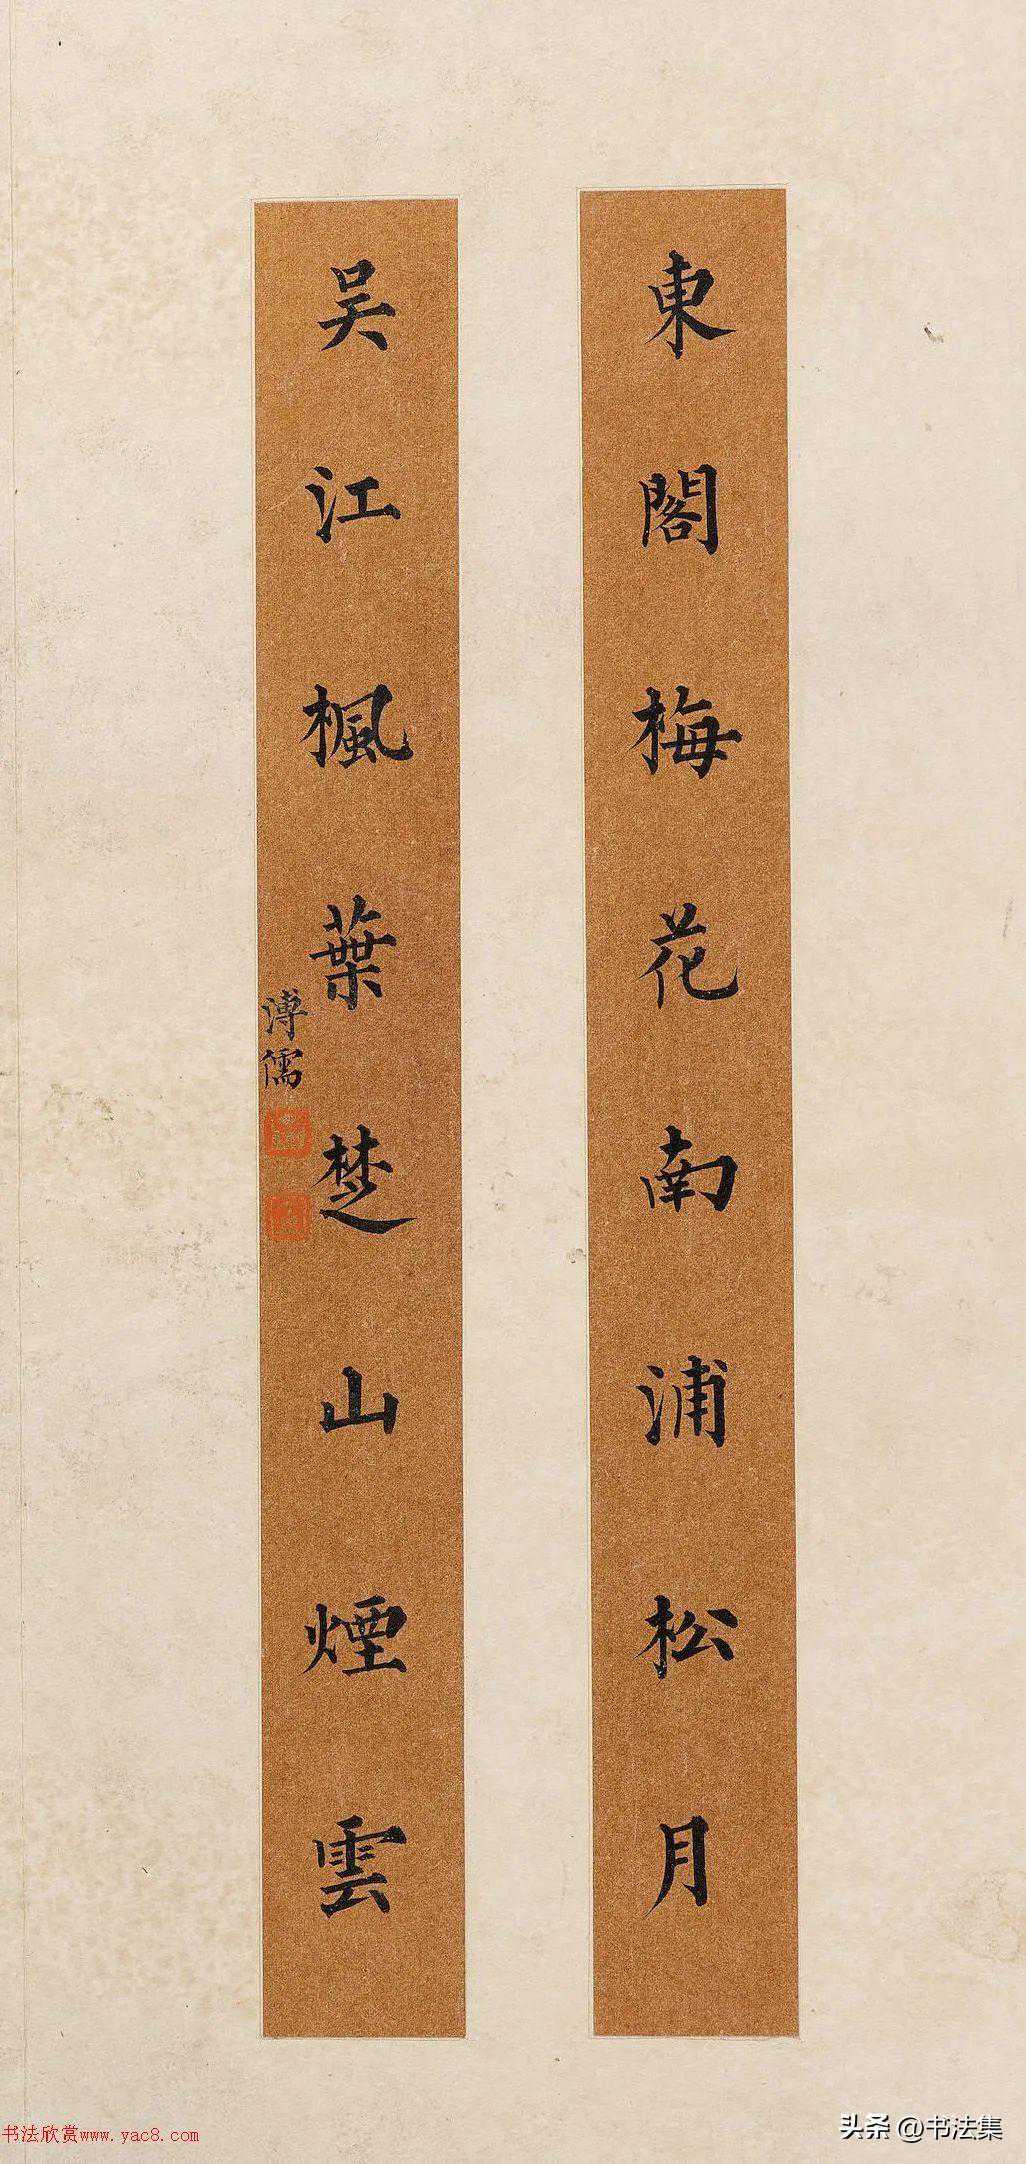 東閣梅花南浦松月
吴江楓葉楚山煙雲
溥儒
书法欣赏www.yac8.com
头条 @书法集